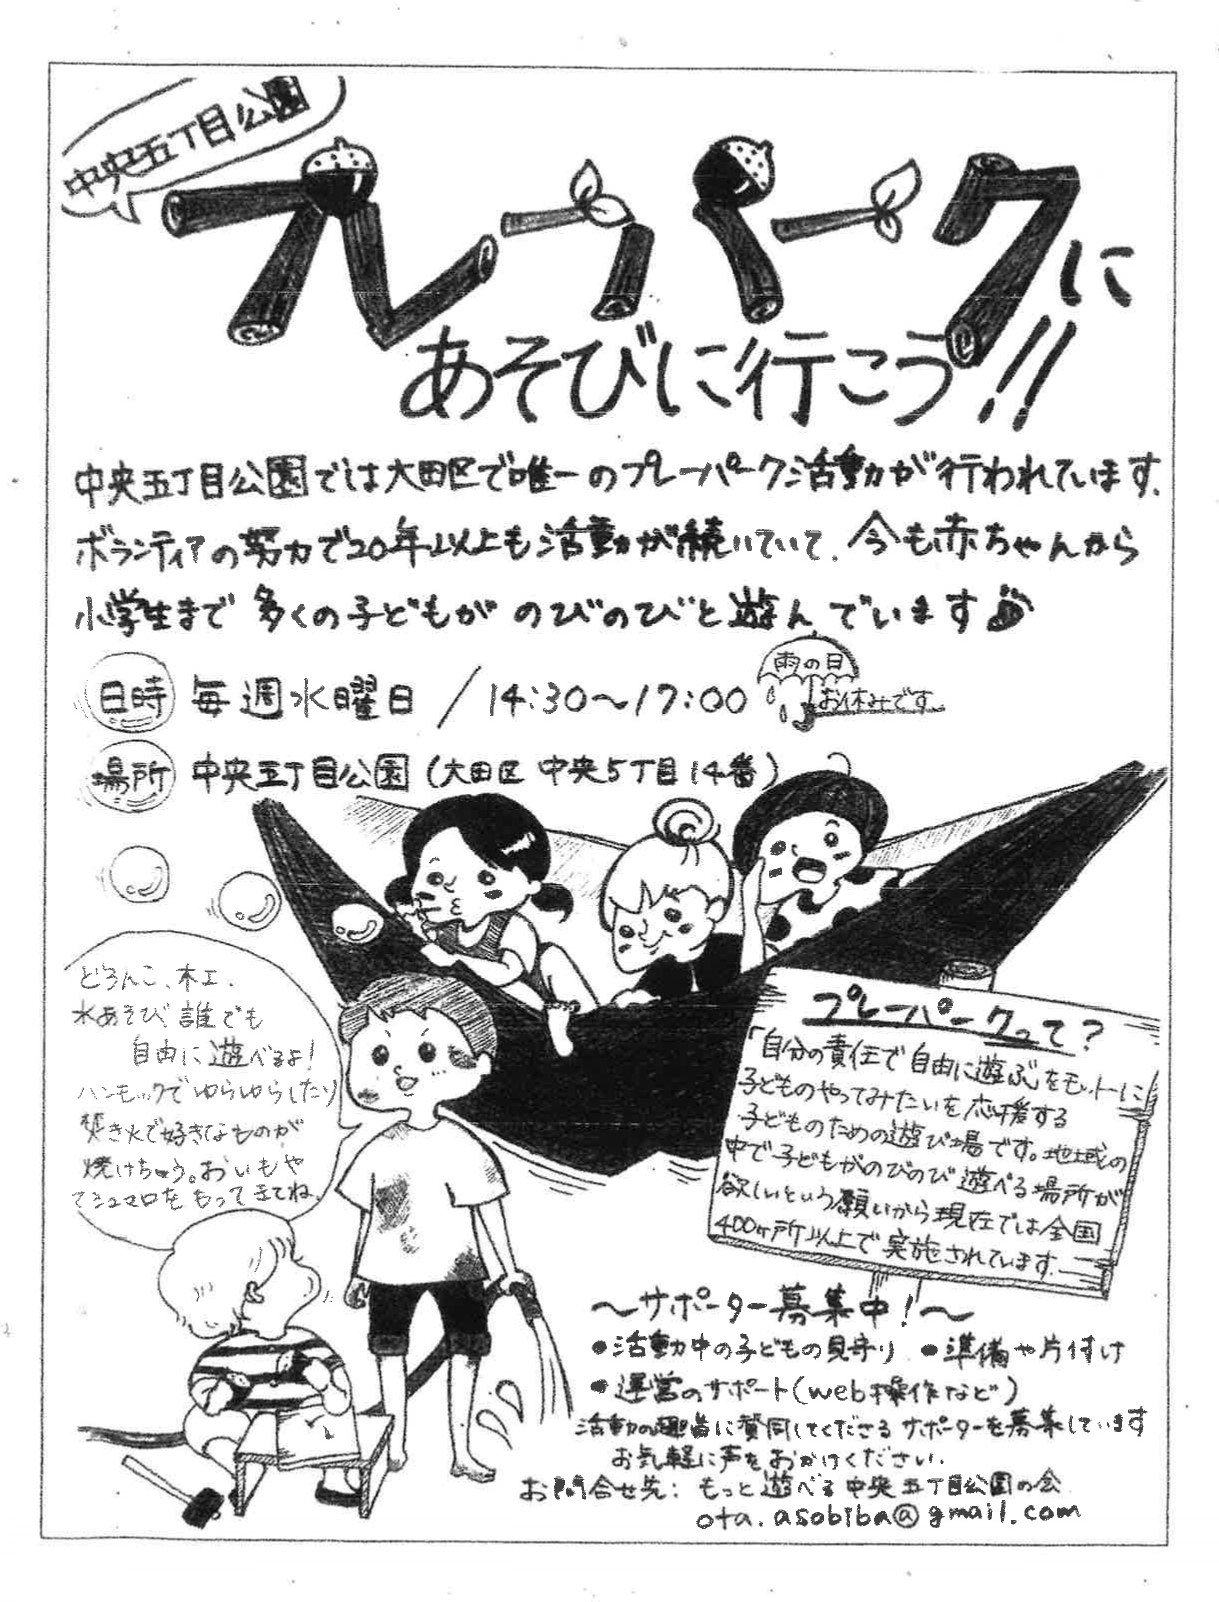 中央五丁目公園
プレーパークに
あそびに行こう!!
中央五丁目公園では大田区で唯一のプレーパーク活動が行われています。
ボランティアの努力で20年以上も活動が続いていて、今も赤ちゃんから
小学生まで多くの子どもがのびのびと遊んでいます
日時 毎週水曜日/14:30〜17:00
雨の日
お休みです。
場所 中央五丁目公園(大田区 中央5丁目14番)
どろんこ、木工、
水あそび 誰でも
自由に遊べるよ!
ハンモックでゆらゆらしたり
焚き火で好きなものが
焼けちゃう。おいもや
マシュマロをもってきてね。
プレーパークって?
「自分の責任で自由に遊ぶ」をモットーに
子どものやってみたいを応援する
子どものための遊び場です。地域の
中で子どもがのびのび遊べる場所が
欲しいという願いから現在では全国
400ヶ所以上で実施されています。
〜サポーター募集中!〜
•活動中の子どもの見守り •準備や片付け
•運営のサポート(web操作など)
活動の趣旨に賛同してくださるサポーターを募集しています
お気軽に声をおかけください。
お問合せ先: もっと遊べる中央五丁目公園の会
ota.asobiba@gmail.com